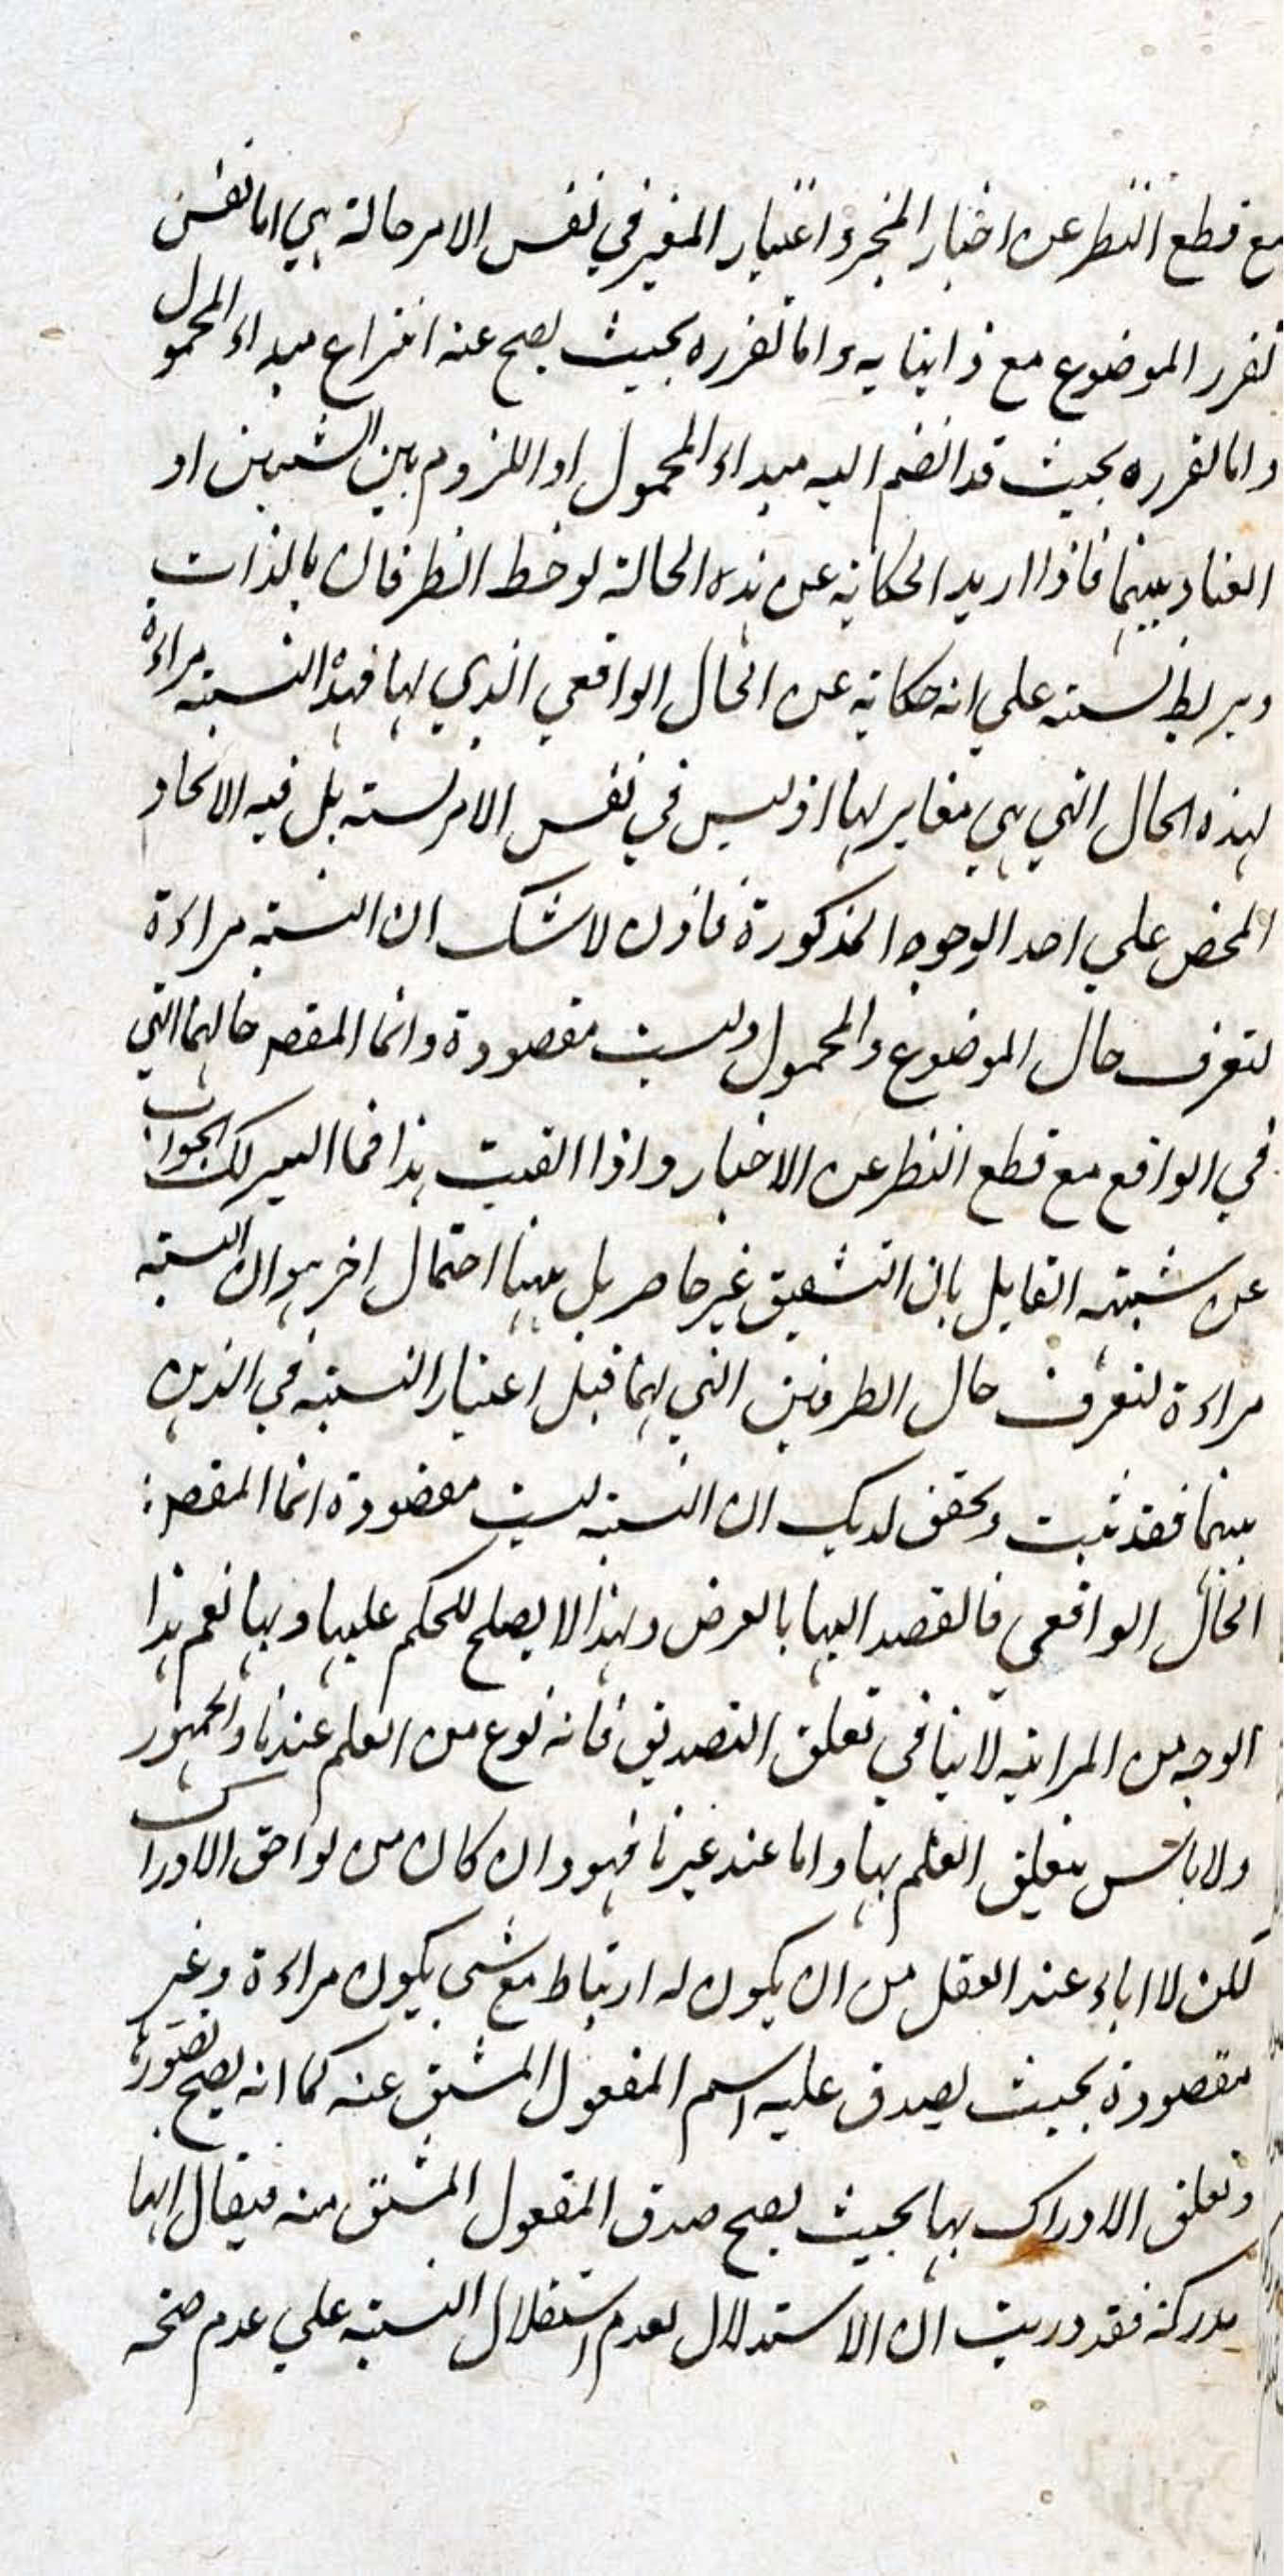 مع قطع النظر عن اخبار المخبر و اعتبار المعتبر في نفس الامر حالة هي اما نفس
تقرر الموضوع مع ذاتياته و اما تقرره بحيث يصح عنه انتزاع مبداء المحمول
و اما تقرره بحيث قد انضم اليه مبداء المحمول او اللزوم بين الشيئين او
العناد بينهما فاذا اريد الحكاية عن هذه الحالة لوحظ الطرفان بالذات
ويربط بنسبته علي انه حكاية عن الحال الواقعي الذي لها فهذه النسبة مراءة
لهذه الحال التي هي مغاير لها اذ ليس في نفس الامر نسبة بل فيه الاتحاد
المحض علي احد الوجوه المذكورة فاذن لا شك ان النسبة مراءة
لتعرف حال الموضوع والمحمول وليست مقصودة وانما المقصر حالهما التي
في الواقع مع قطع النظر عن الاخبار واذا القيت هذا فما اليسر لك الجواب
عن شبهة القايل بان التشقيق غير حاصر بل ههنا احتمال اخر هو ان النسبة
مراءة لتعرف حال الطرفين التي لهما قبل اعتبار النسبة في الذهن
بينهما فقد ثبت وتحقق لديك ان النسبة ليست مقصودة انما المقصر
الحال الواقعي فالقصد اليها بالعرض ولهذا لا يصلح للحكم عليها وبها نعم هذا
الوجه من المراتية لا ينافي تعلق التصديق فانه نوع من العلم عندنا والجمهور
ولا باس بتعلق العلم بها واما عند غيرنا فهو وان كان من لواحق الادراك
لكن لا اباء عند العقل من ان يكون له ارتباط مع شي يكون مراءة وغير
مقصودة بحيث يصدق عليه اسم المفعول المشتق عنه كما انه يصح تصوره
وتعلق الادراك بها بحيث يصح صدق المفعول المشتق منه فيقال انها
مدركة فقد دريت ان الاستدلال بعدم استقلال النسبة علي عدم صحة